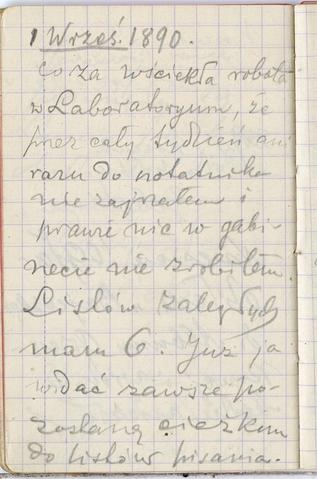 1 Wrześ. 1890.
Co za wściekła robota
w Laboratoryum, że
przez cały tydzień ani
razu do notatnika
nie zajrzałem i
prawie nic w gabi-
necie nie zrobiłem.
Listów zaległych
mam 6. Już ja
widać zawsze po-
zostanę ciężkim
do listów pisania.